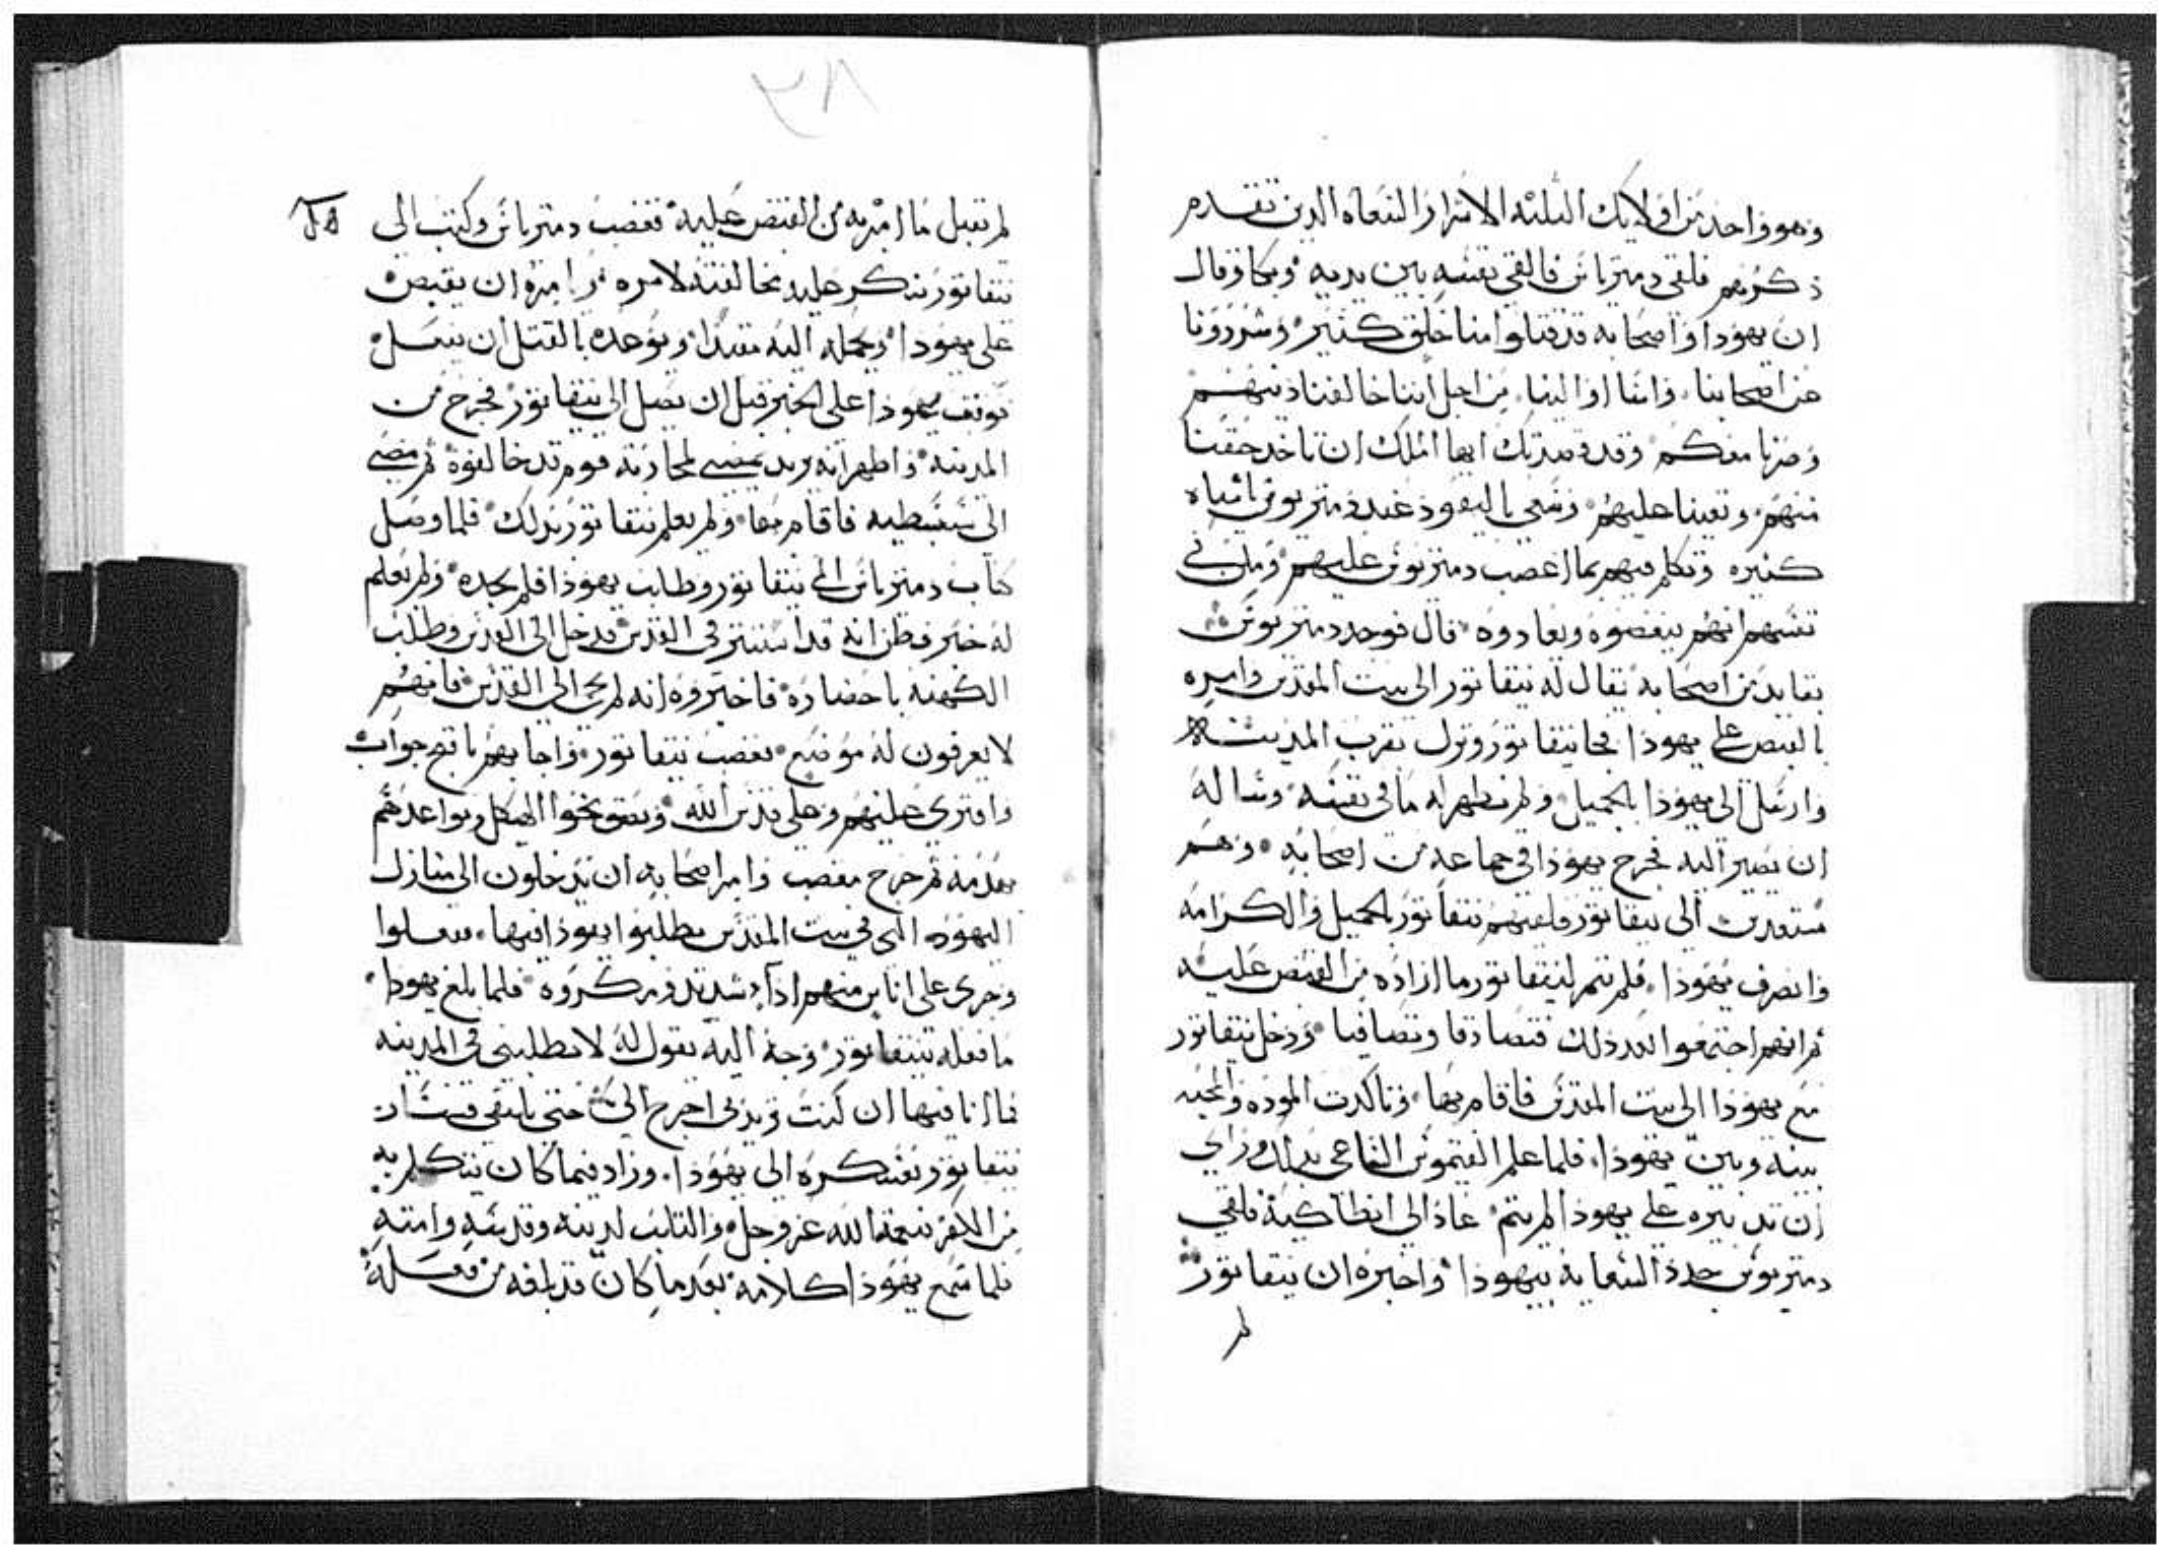 وهو واحد من اولايك الثلثه الاشرار السعاه الدين تقدم
ذكرهم فلقي دمتريانس فالقي نفسه بين يديه وبكا وقال
ان يهودا واصحابه قد قتلوا منا خلق كثير وشردونا
عن اصحابنا وانفاا والينا من اجل اننا خالفنا دينهم
وصرنا معكم وقد قصدتك ايها الملك ان تاخد حقنا
منهم وتعينا عليهم وسعي باليهود عند دمتريوس باشياه
كثيره وتكلم فيهم بما اغضب دمتريوس عليهم ومكن في
نفسهم انهم يبغضوه ويعادوه قال فوجد دمتريوس
بقايد من اصحابه يقال له نيقانور الى بيت المقدس وامره
بالقبض على يهودا فجا نيقانور ونزل بقرب المدينه
وارسل الى يهودا بالجميل ولم يظهر له ما في نفسه وساله
ان يصير اليه فخرج يهودا في جماعه من اصحابه وهم
مستعدين الى نيقانور فلقيهم نيقانور بالجميل والكرامه
وانصرف يهودا فلم يتم لنيقانور ما اراده من القبض عليه
ثم انهم اجتمعوا بعد ذلك فتصادقا وتصافيا ودخل نيقانور
مع يهودا الى بيت المقدس فاقام بها وتاكدت الموده والمحبه
بينه وبين يهودا فلما علم القيموس الساعي بدلك وراي
ان تدبيره على يهودا لم يتم عاد الى انطاكية فلقي
دمتريوس جدد السعايه بيهودا واخبره ان نيقانور
لم
لم يقبل ما امر به من القبض عليه فغضب دمتريانس وكتب الى
نيقانور يذكر عليه مخالفته لامره وامره ان يقبض
على يهودا ويحمله اليه مقيدا ويوعده بالقتل ان يفعل
فوقف يهودا على الخبر قبل ان يصل الى نيقانور فخرج من
المدينه واظهر انه يريد يمضي لمحاربة قوم قد خالفوه ثم مضى
الى سبسطيه فاقام بها ولم يعلم نيقانور بدلك فلما وصل
كتاب دمتريانس الى نيقانور وطلب يهودا فلم يجده ولم يعلم
له خبر فظن انه قد استتر في القدس فدخل الى القدس وطلب
الكهنه باحضاره فاخبروه انه لم يجي الى القدس فانهم
لا يعرفون له موضع فغضب نيقانور واجابهم باقبح جواب
وافتري عليهم وعلى قدس الله وبصق نحوا الهيكل وتواعدهم
بهدمه ثم خرج بغضب وامر اصحابه ان يدخلون الى منازل
اليهود التي في بيت المقدس يطلبوا يهودا فيها ففعلوا
وجرى على اناس منهم اذا شديد ومكروه فلما بلغ يهودا
ما فعله نيقانور وجه اليه يقول له لا تطلبني في المدينه
فما انا فيها ان كنت تريدني اخرج الي حتى نلتقي فسار
نيقانور بعسكره الى يهودا وزاد فيما كان يتكلم به
من الكفر بنعمة الله عز وجل والتلب لدينه وقدسه وامته
فلما سمع يهودا كلامه بعد ما كان قد بلغه من فعله